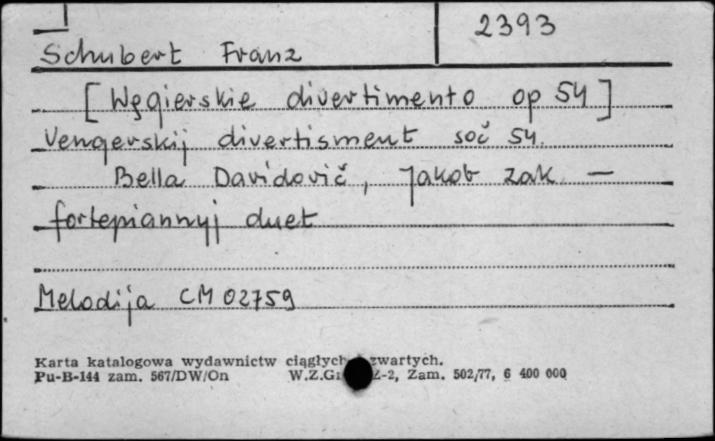 2393
Schubert Franz
[Węgierskie divertimento op 54]
Vengerskij divertisment soč 54.
Bella Davidovič, Jakob Zak —
fortepiannyj duet
Melodija CM 02759
Karta katalogowa wydawnictw ciągłych zwartych.
Pu-B-144 zam. 567/DW/On W.Z.Gr Z-2, Zam. 502/77, 6 400 000